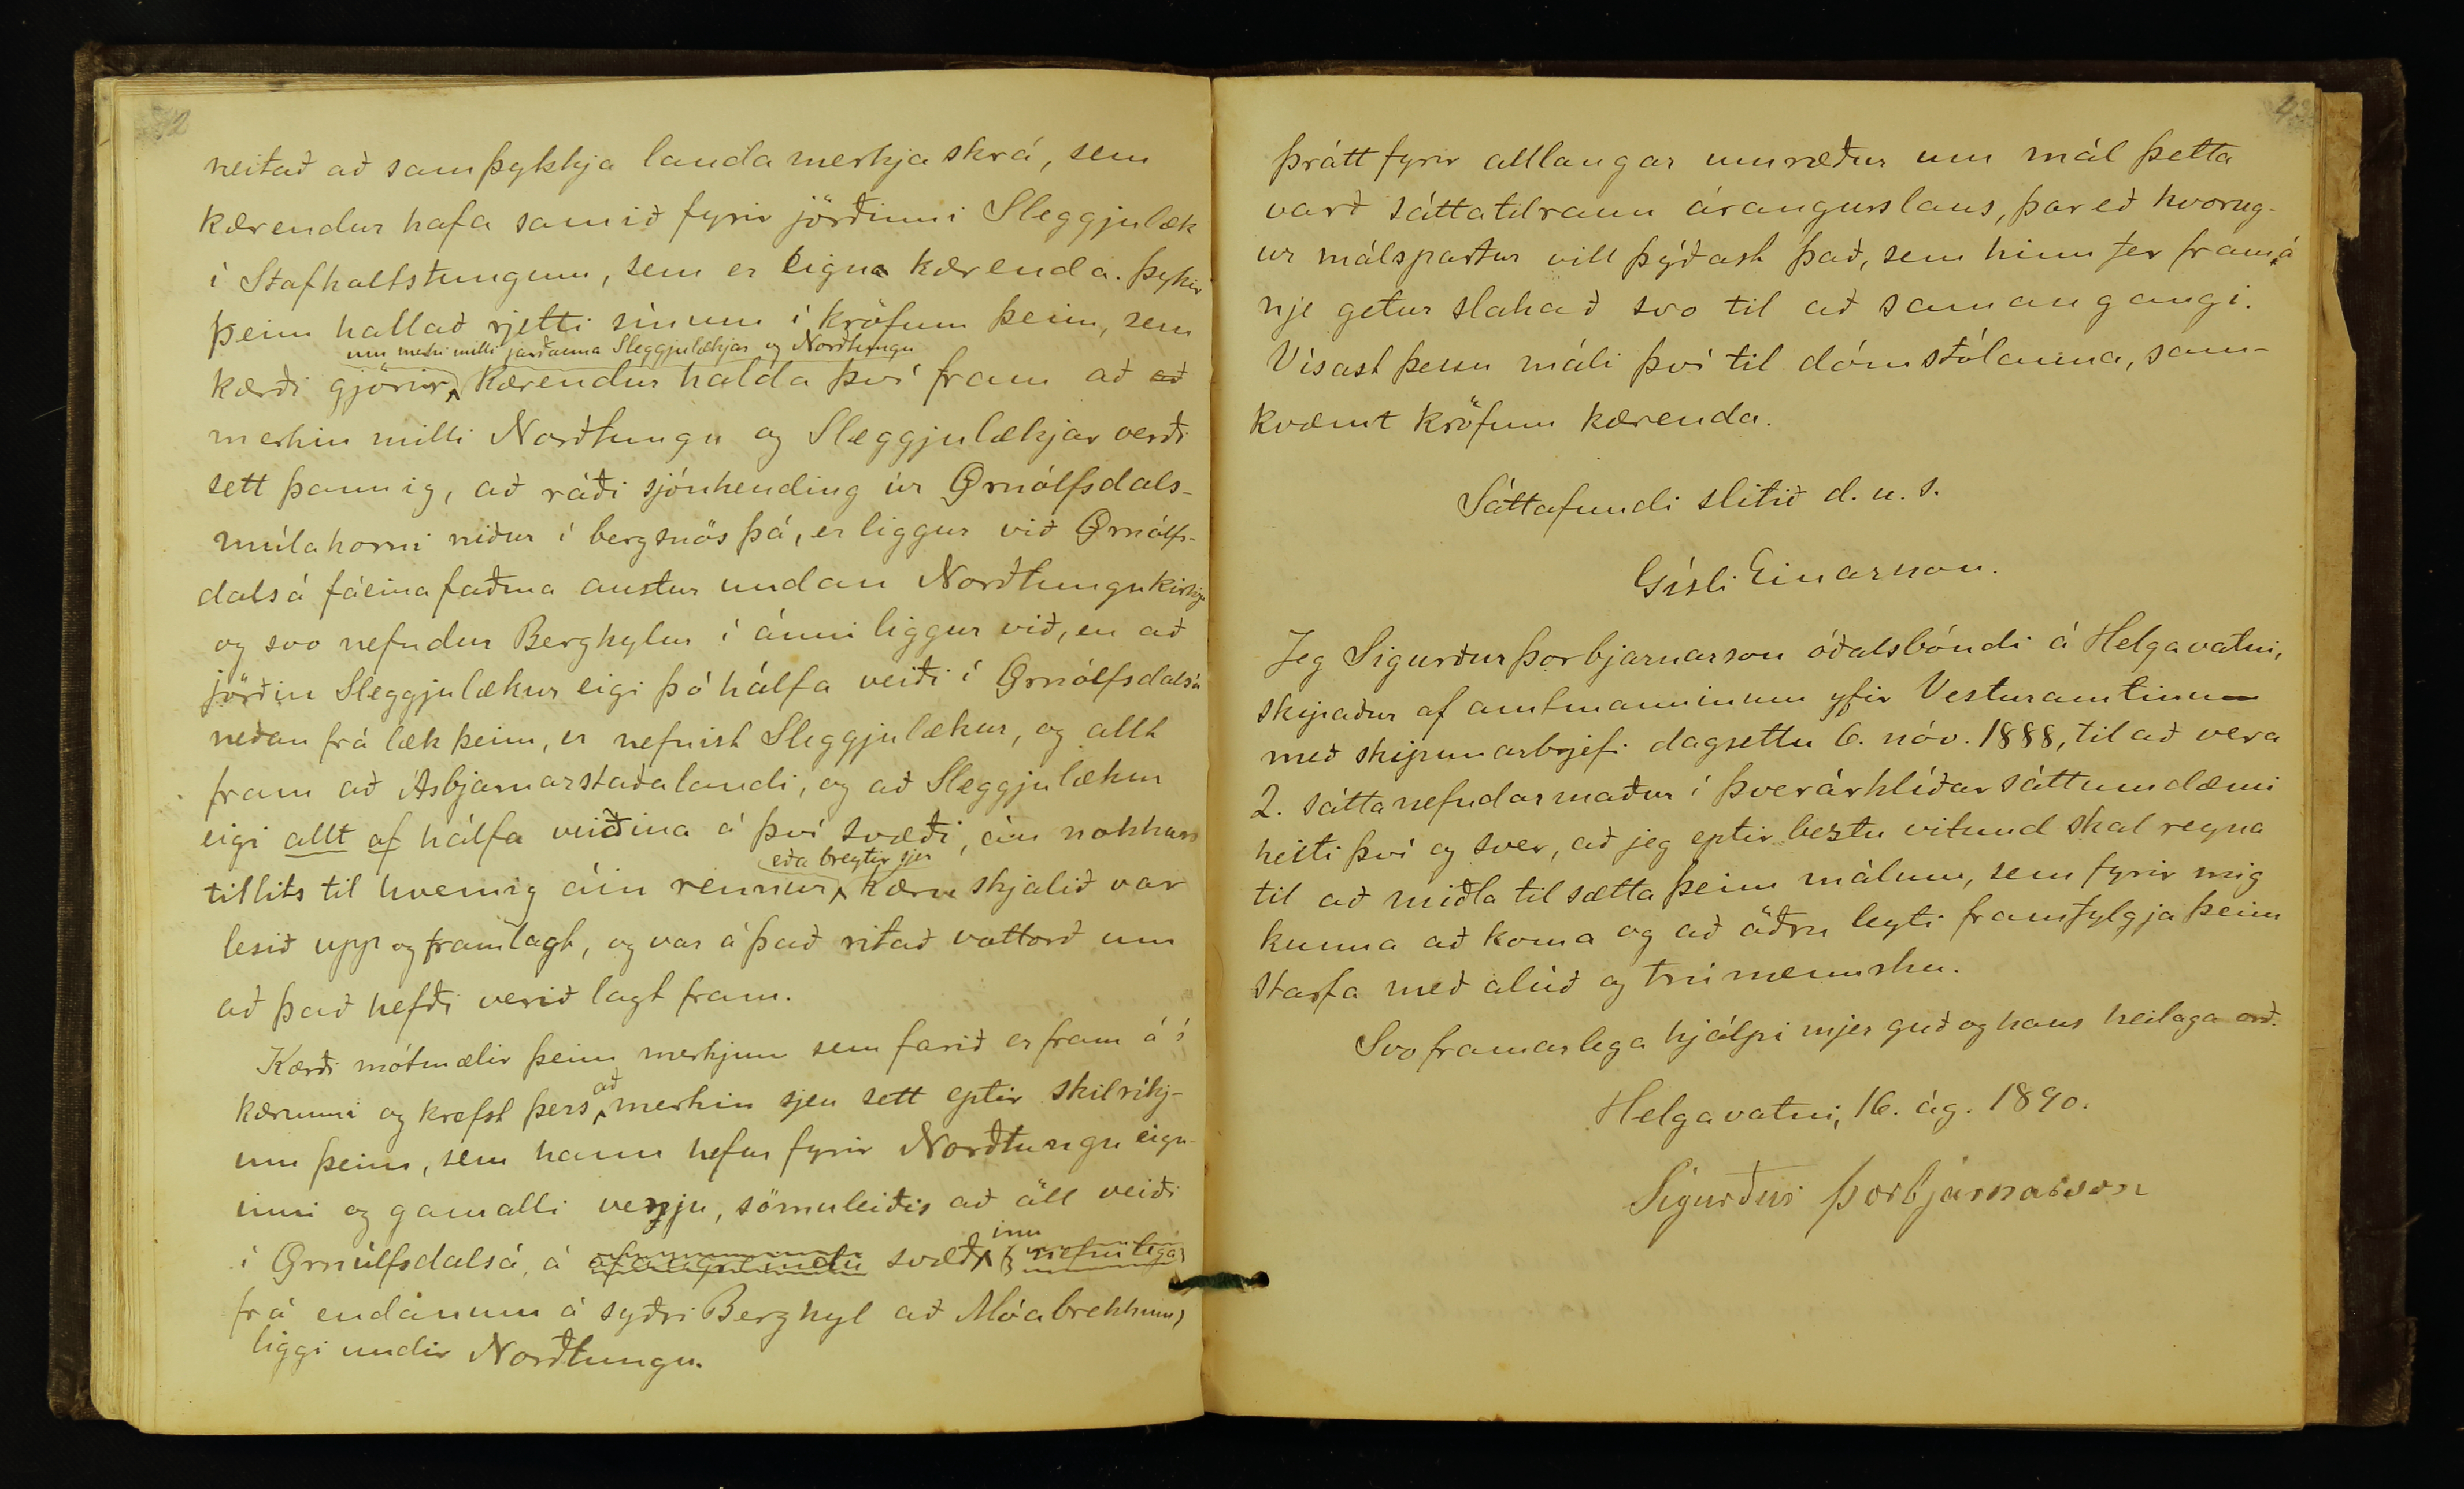 neitað að samþykkja landamerkjaskrá, sem
kærendur hafa samið fyrir jörðinni Sleggjulæk
í Stafholtstungum, sem er eign kærenda. Þykir
þeim hallað rjetti sínum í kröfum þeim, sem
um merki milli jarðanna Sleggjulækjar og Norðtungu
kærði gjörir, Kærendur halda því fram að að
merkin milli Norðtungu og Sleggjulækjar verði
sett þannig, að ráði sjónhending úr Örnólfsdals-
múlahorni niður í bergsnös þá, er liggur við Örnólfs-
dalsá fáeina faðma austur undan Norðtungukirkju
og svo nefndur Berghylur í ánni liggur við, en að
jörðin Sleggjulækur eigi þó hálfa veiði í Örnólfsdalsá
neðan frá læk þeim, er nefnist Sleggjulækur, og allt
fram að Ásbjarnarstaðalandi, og að Sleggjulækur
eigi allt af hálfa veiðina á því svæði, án nokkurs
eða breytir sjer
tillits til hvernig áin rennur, Kæruskjalið var
lesið upp og framlagt, og var á það ritað vottorð um
að það hefði verið lagt fram.
Kærði mótmælir þeim merkjum sem farið er fram á í
að
kærunni og krefst þess merkin sjeu sett eptir skilríkj-
um þeim, sem hann hefur fyrir Norðtungu eign-
inni og gamalli venju, sömuleiðis að öll veiði
inu
í Örnólfsdalsá, á svæð (nefnilega
frá endanum á syðri Berghyl að Móabrekkum)
liggi undir Norðtungu.
þrátt fyrir alllangar umræður um mál þetta
varð sáttatilraun árangurslaus, þareð hvorug-
ur málspartur vill þýðast það, sem hinn fer fram á
nje getur slakað svo til að saman gangi.
Vísast þessu máli því til dómstólanna, sam-
kvæmt kröfum kærenda.
Sáttafundi slitið d. u. s.
Gísli Einarsson.
Jeg Sigurður Þorbjarnarson óðalsbóndi á Helgavatni,
skipaður af amtmanninum yfir Vesturamtinu
með skipunarbrjefi dagsettu 6. nóv. 1888, til að vera
2. sáttanefndarmaður í Þverárhlíðar sáttaumdæmi
heiti því og sver, að jeg eptir beztu vitund skal reyna
til að miðla til sætta þeim málum, sem fyrir mig
kunna að koma og að öðru leyti framfylgja þeim
starfa með alúð og trúmennsku.
Svo framarlega hjálpi mjer guð og hans heilaga orð.
Helgavatni, 16. ág. 1890.
Sigurður Þorbjarnarson